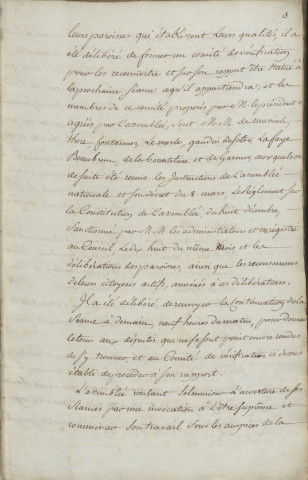 3
leurs paroisses qui établissent leurs qualités, il a
été délibéré de former un comité de vérification
pour les reconnoitre et sur son rapport être statué à
la prochaine séance ce qu'il appartiendra; et les
membres de ce comité proposés par M. le président et
agréés par l'assemblée, sont MM.
fontaines, Le merle, gaudin de Soter, La faye
Beaubrun, de la Cocralature et de Garnes, auxquels on
de suite été remis les Instructions de l'assemblée
nationale et son décret du 8. mars, le Réglement sur
la Constitution de l'assemblée, du huit décembre,
Sanctionné par MM les administrateurs et enregistré
au Conseil, Le huit du même mois et les
délibérations des paroisses, ainsi que les recensemens
de leurs citoyens actifs, annexés à ces délibérations.
Il a été délibéré de renvoyer la Continuation de la
Séance à demain, neuf heures du matin, pour donner
le tems aux députés qui ne se sont point encore rendus
de s'y trouver, et au Comité de vérification ci dessus
établi de procéder à son rapport.
L'assemblée voulant Solemniser L'ouverture de ses
Séances par une invocation à L'être suprême et
commencer son travail sous les auspices de la